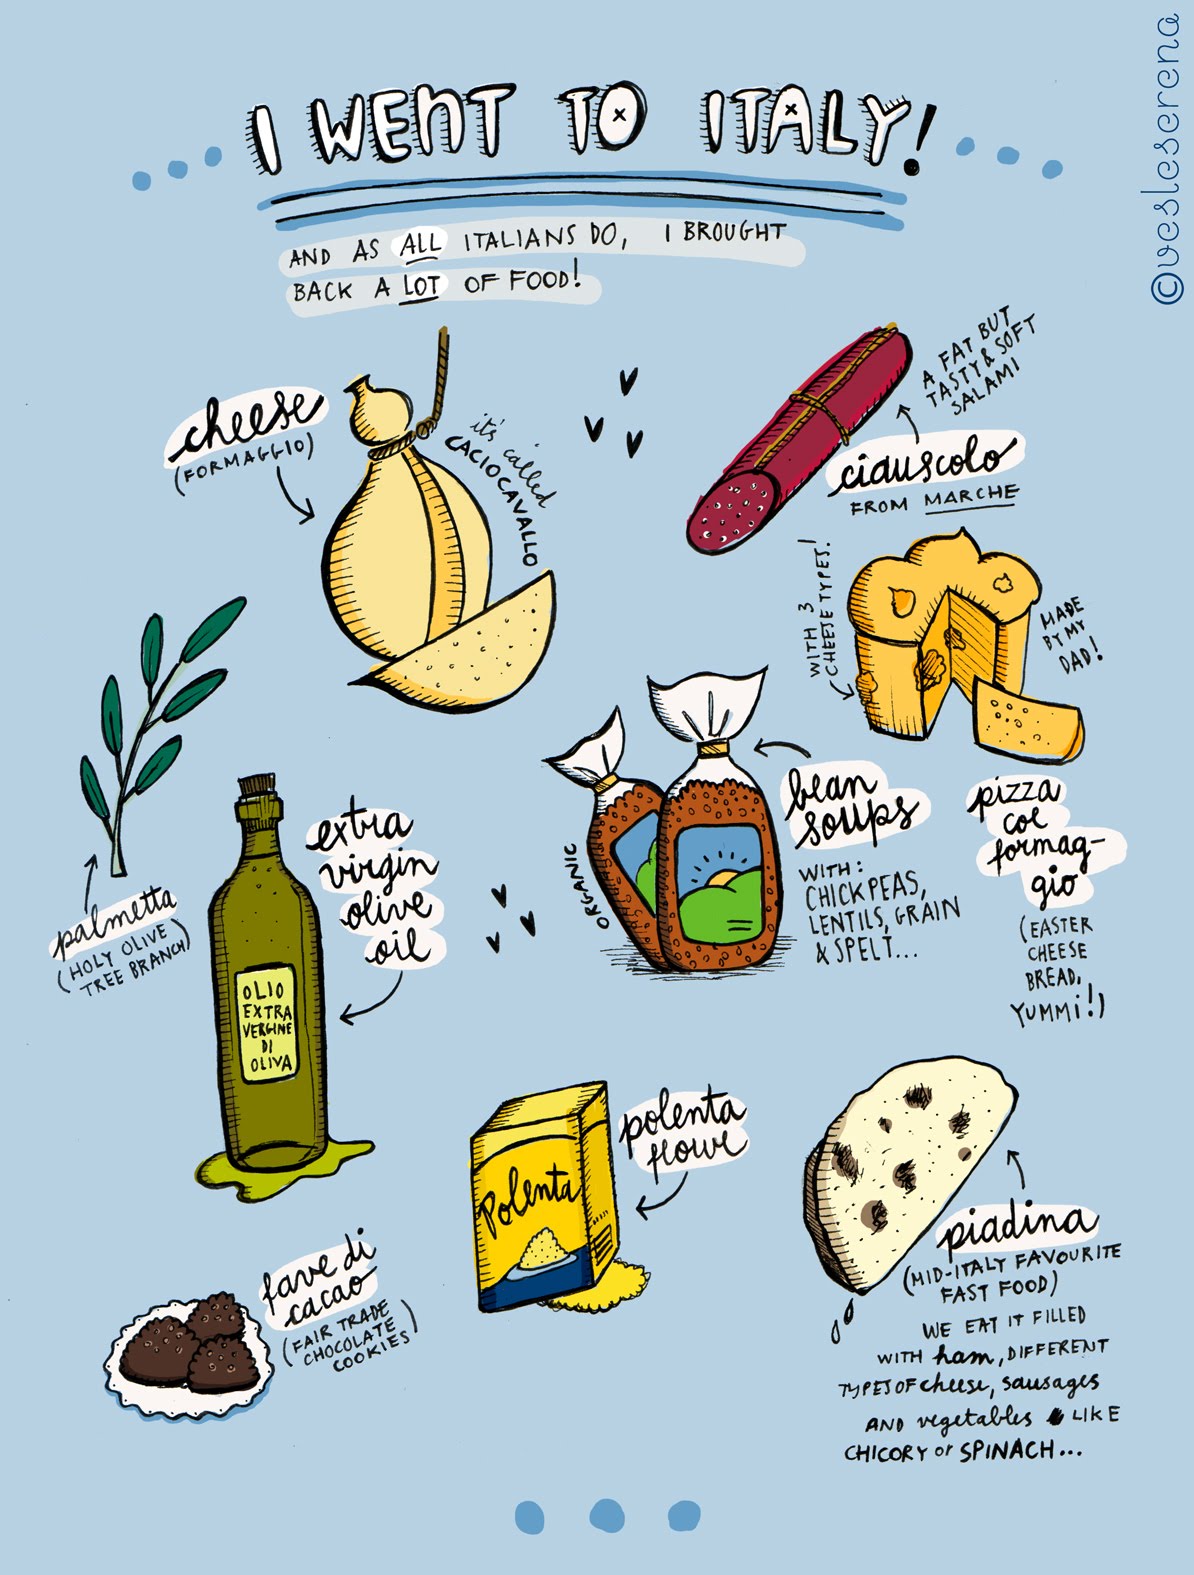 ©vesleserena
I WENT TO ITALY!
AND AS ALL ITALIANS DO, I BROUGHT
BACK A LOT OF FOOD!
cheese
(FORMAGGIO)
it's called
CACIOCAVALLO
A FAT BUT
TASTY & SOFT
SALAMI
ciauscolo
FROM MARCHE
WITH 3
CHEESE TYPES!
MADE
BY MY
DAD!
pizza
coe
formag-
gio
(EASTER
CHEESE
BREAD,
YUMMi!)
bean
soups
WITH:
CHICKPEAS,
LENTILS, GRAIN
& SPELT...
ORGANIC
palmetta
(HOLY OLIVE
TREE BRANCH)
extra
virgin
olive
oil
OLIO
EXTRA
VERGINE
DI
OLIVA
polenta
flowr
Polenta
piadina
(MID-ITALY FAVOURITE
FAST FOOD)
WE EAT IT FILLED
WITH ham, DIFFERENT
TYPES OF cheese, sausages
AND vegetables LIKE
CHICORY or SPINACH...
fave di
cacao
(FAIR TRADE
CHOCOLATE
COOKIES)